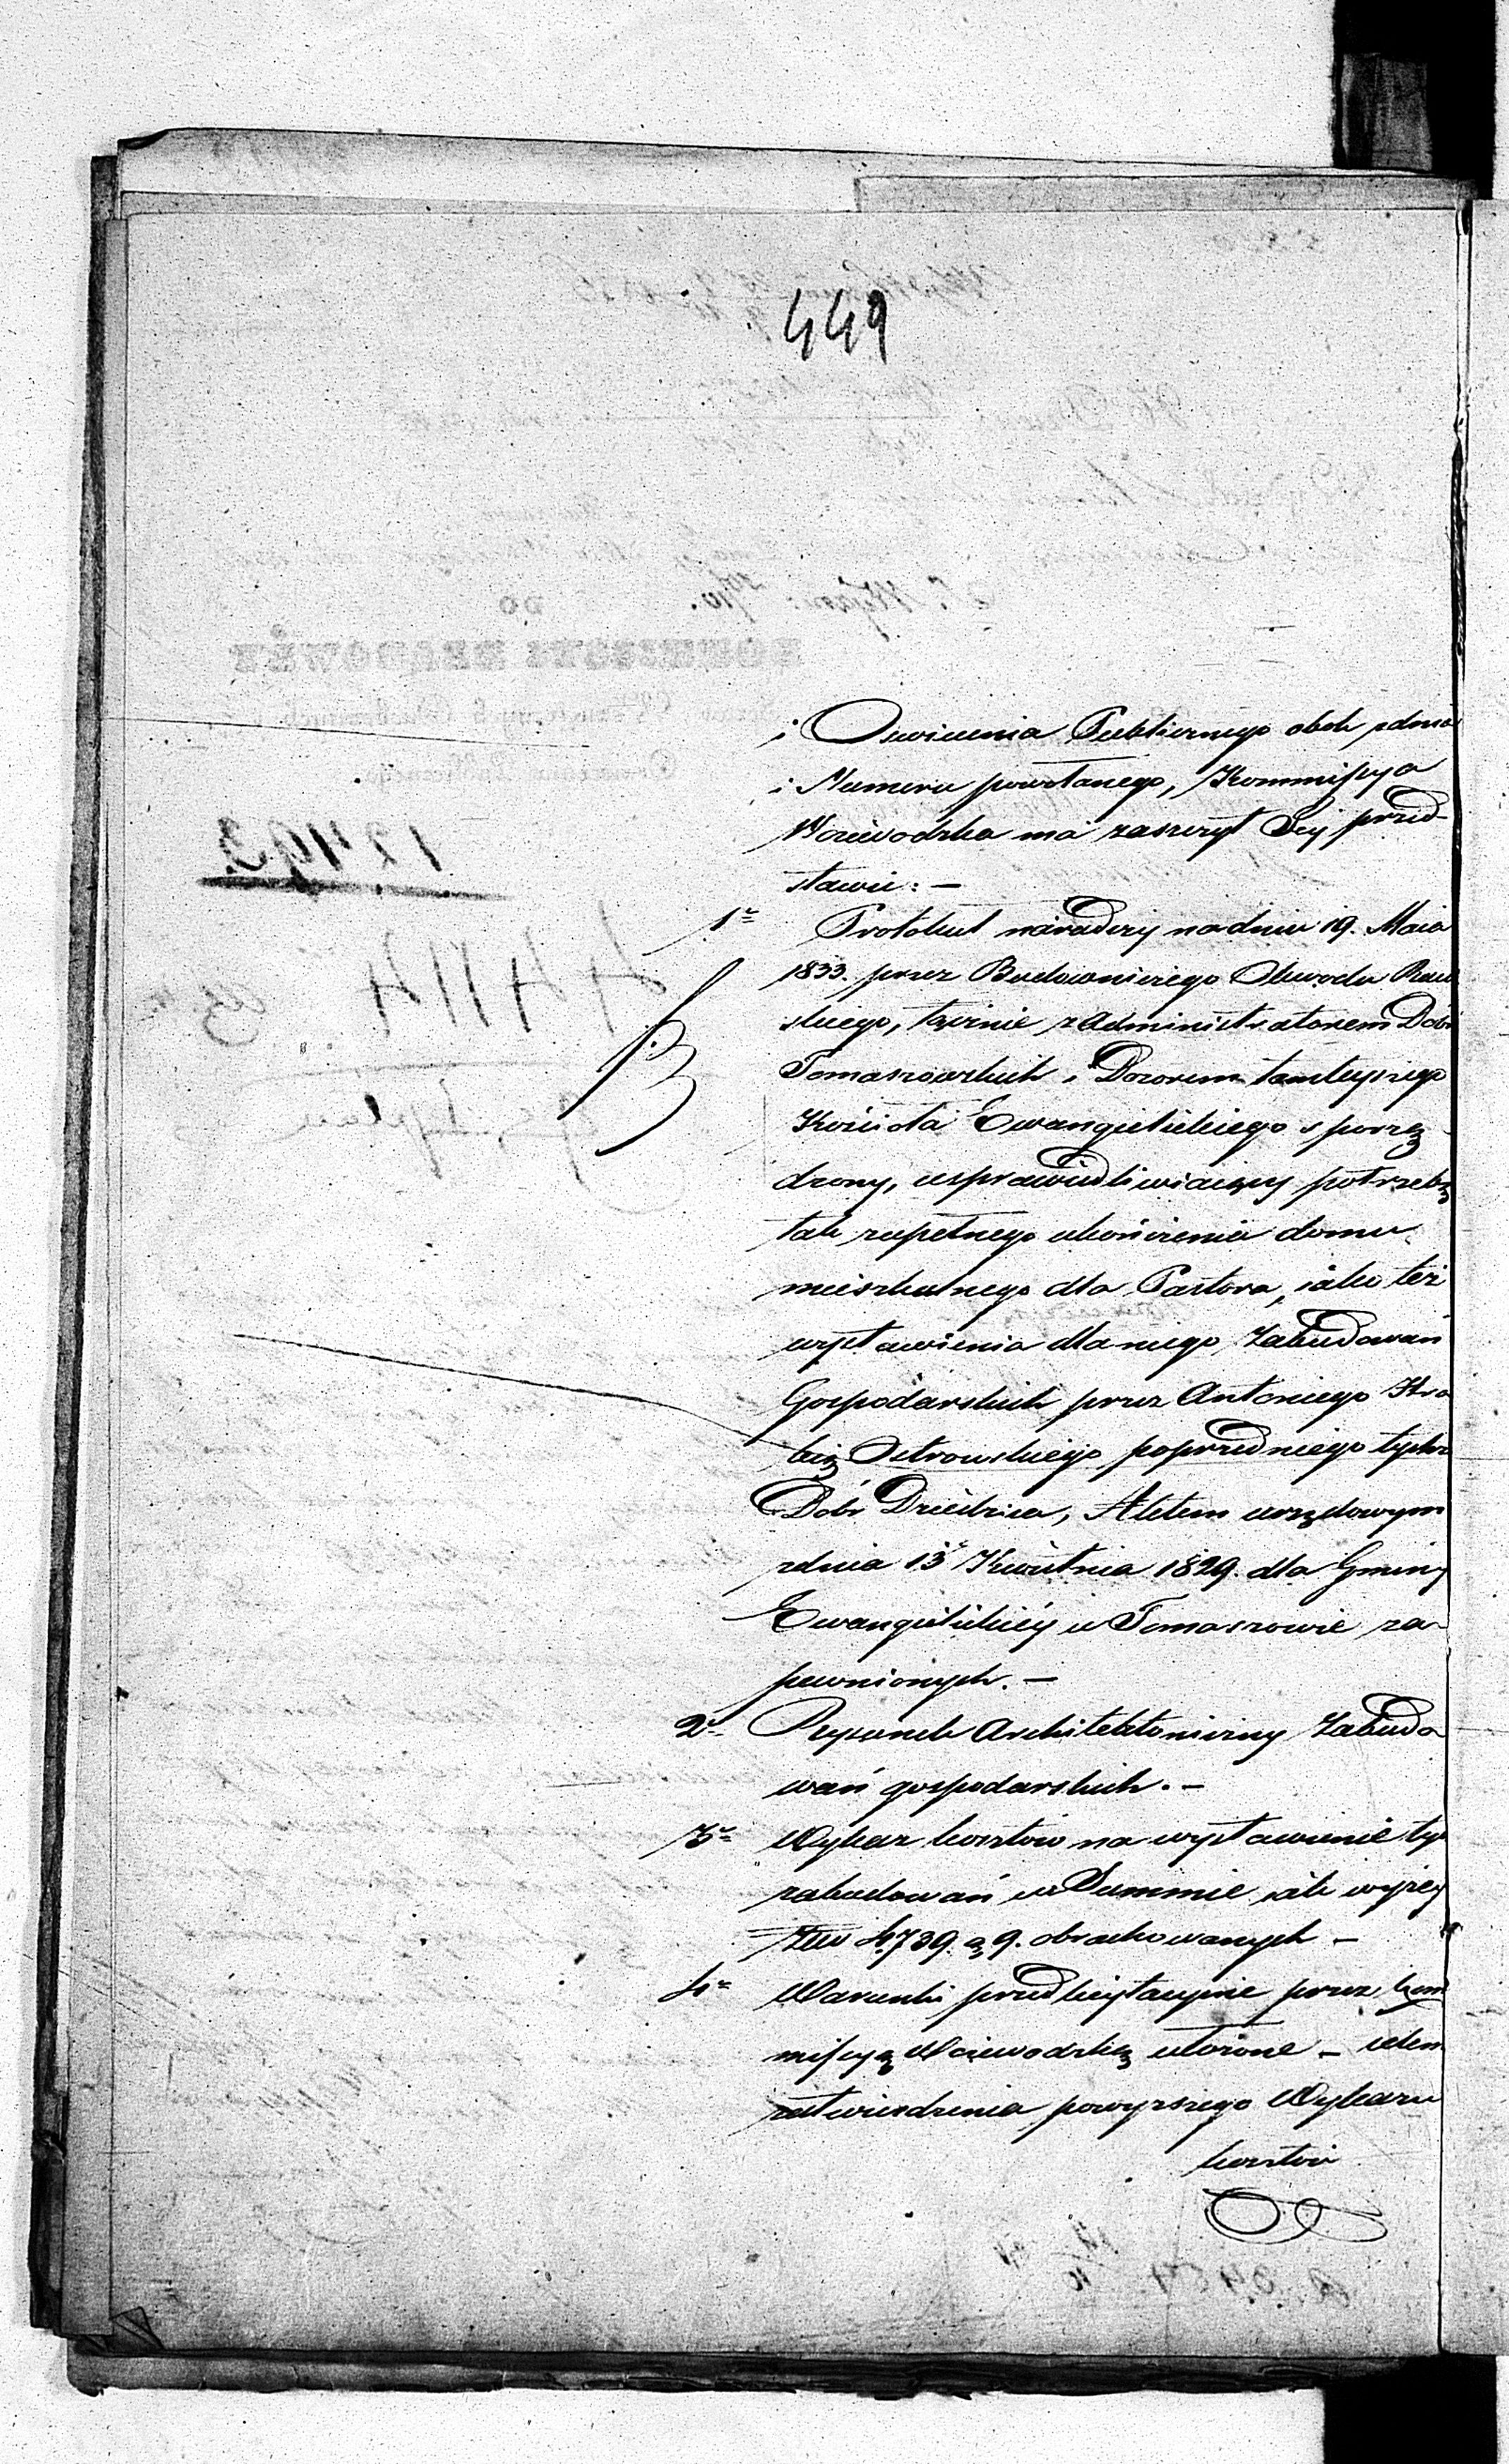 449
i Oswiecenia Publicznego obok zdnia
i Numeru powołanego, Kommissya
Woiewodzka ma zaszczyt Jey przed-
stawić: —
1o Protokuł naradczy na dniu 19. Maia
1833. przez Budowniczego Obwodu Raw
skiego, łącznie z Administratorem Dóbr
Tomaszowskich i Dozorem tamteyszego
Kościoła Ewangelickiego sporzą-
dzony, usprawiedliwiaiący potrzebę
tak zupełnego ukończenia domu
mieszkalnego dla Pastora, iako też
wystawienia dla niego Zabudowań
Gospodarskich przez Antoniego Hra
bię Ostrowskiego poprzedniego tychże
Dóbr Dziedzica, Aktem urzędowym
zdnia 13 Kwietnia 1829. dla Gminy
Ewangelickiéy w Tomaszowie za-
pewnionych. —
2o Rysunek Architektoniczny Zabudo
wań gospodarskich. —
3o Wykaz kosztów na wystawienie ty
zabudowań w Summie iak wyżey
4739. 9. obrachowanych —
4o Warunki przedlicytacyine przez Kom
missyą Woiewodzką ułożone — celem
zatwierdzenia powyższego Wykazu
kosztów